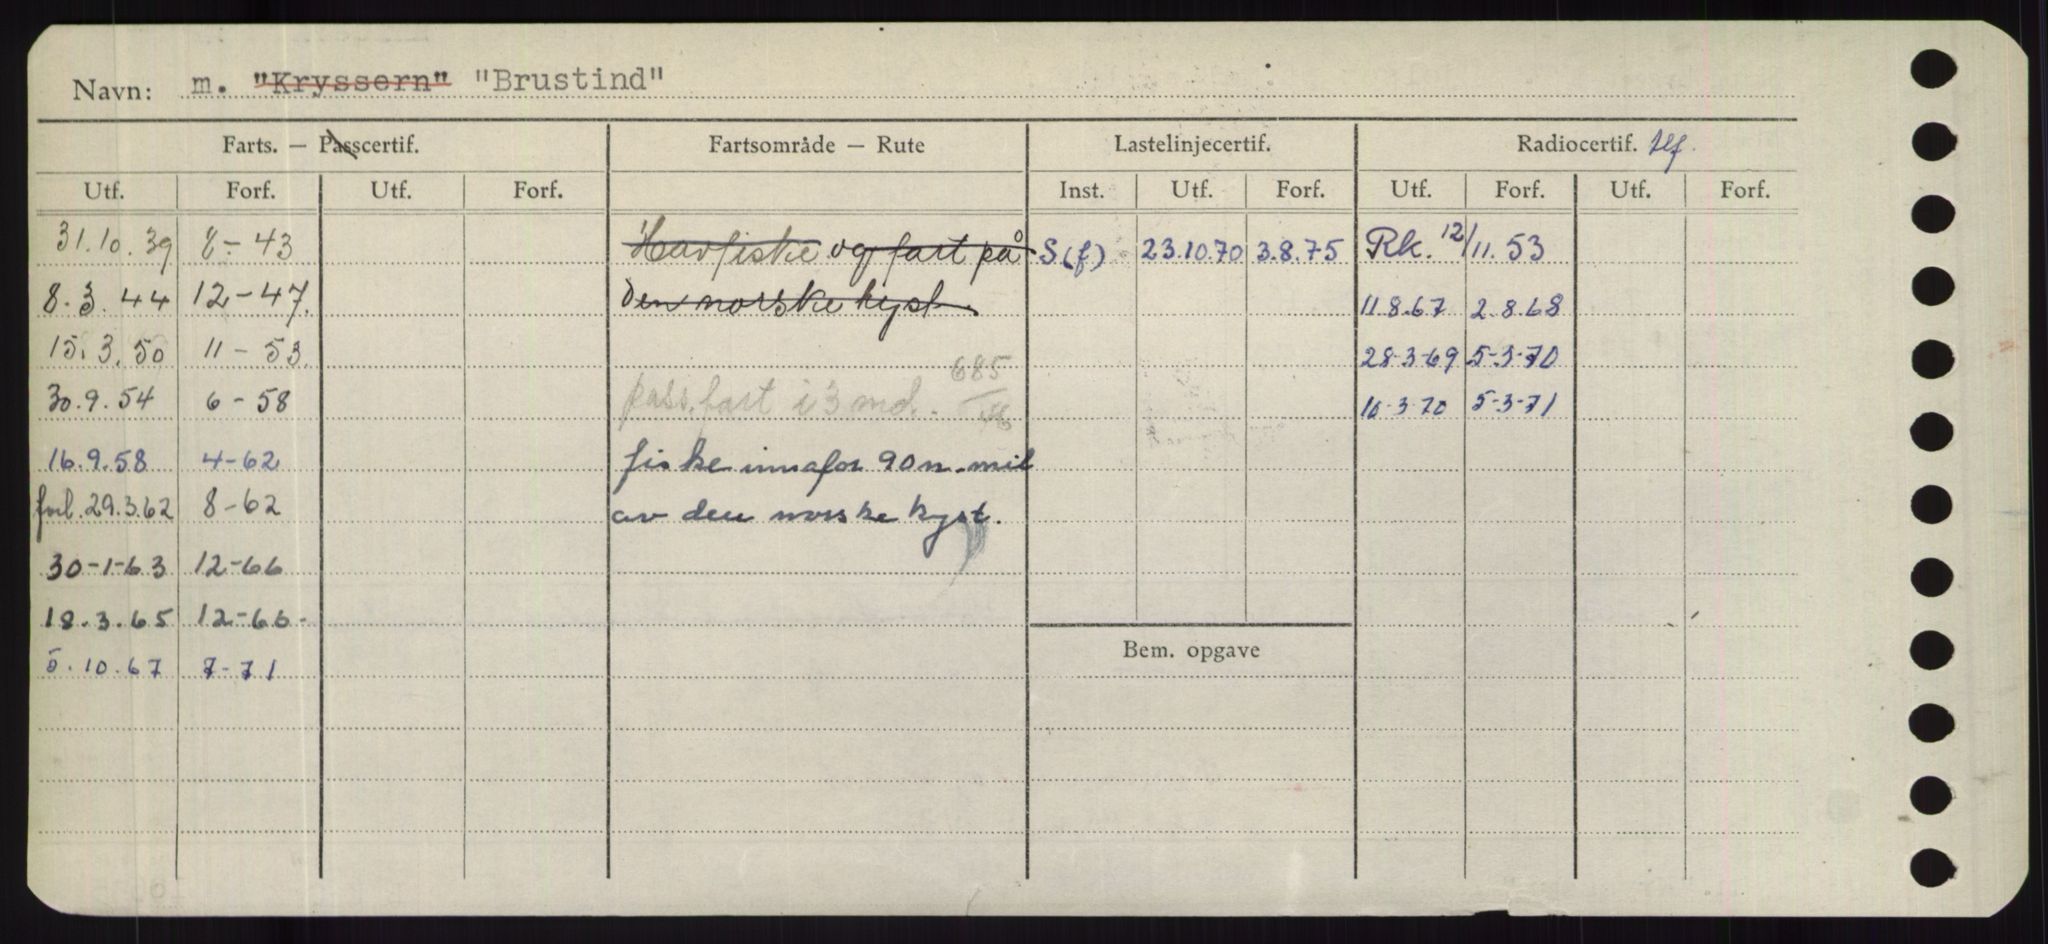 Navn: m. "Kryssern" "Brustind"
Farts. — Passcertif. Fartsområde — Rute Lastelinjecertif. Radiocertif. tlf.
Utf. Forf. Utf. Forf. Inst. Utf. Forf. Utf. Forf. Utf. Forf.
31.10.39 8-43 Havfiske og fart på S(f) 23.10.70 3.8.75 Rk. 12/11.53
8.3.44 12-47. den norske kyst. 11.8.67 2.8.68
15.3.50 11-53. 28-3-69 5-3-70
30.9.54 6-58 pass.fart i 3 md. 685/ 16-3-70 5-3-71
16.9.58 4-62 fiske innafor 90 n.mil
forl. 29.3.62 8-62 av den norske kyst.
30-1-63 12-66
18.3.65 12-66-
Bem. opgave
5.10.67 7-71